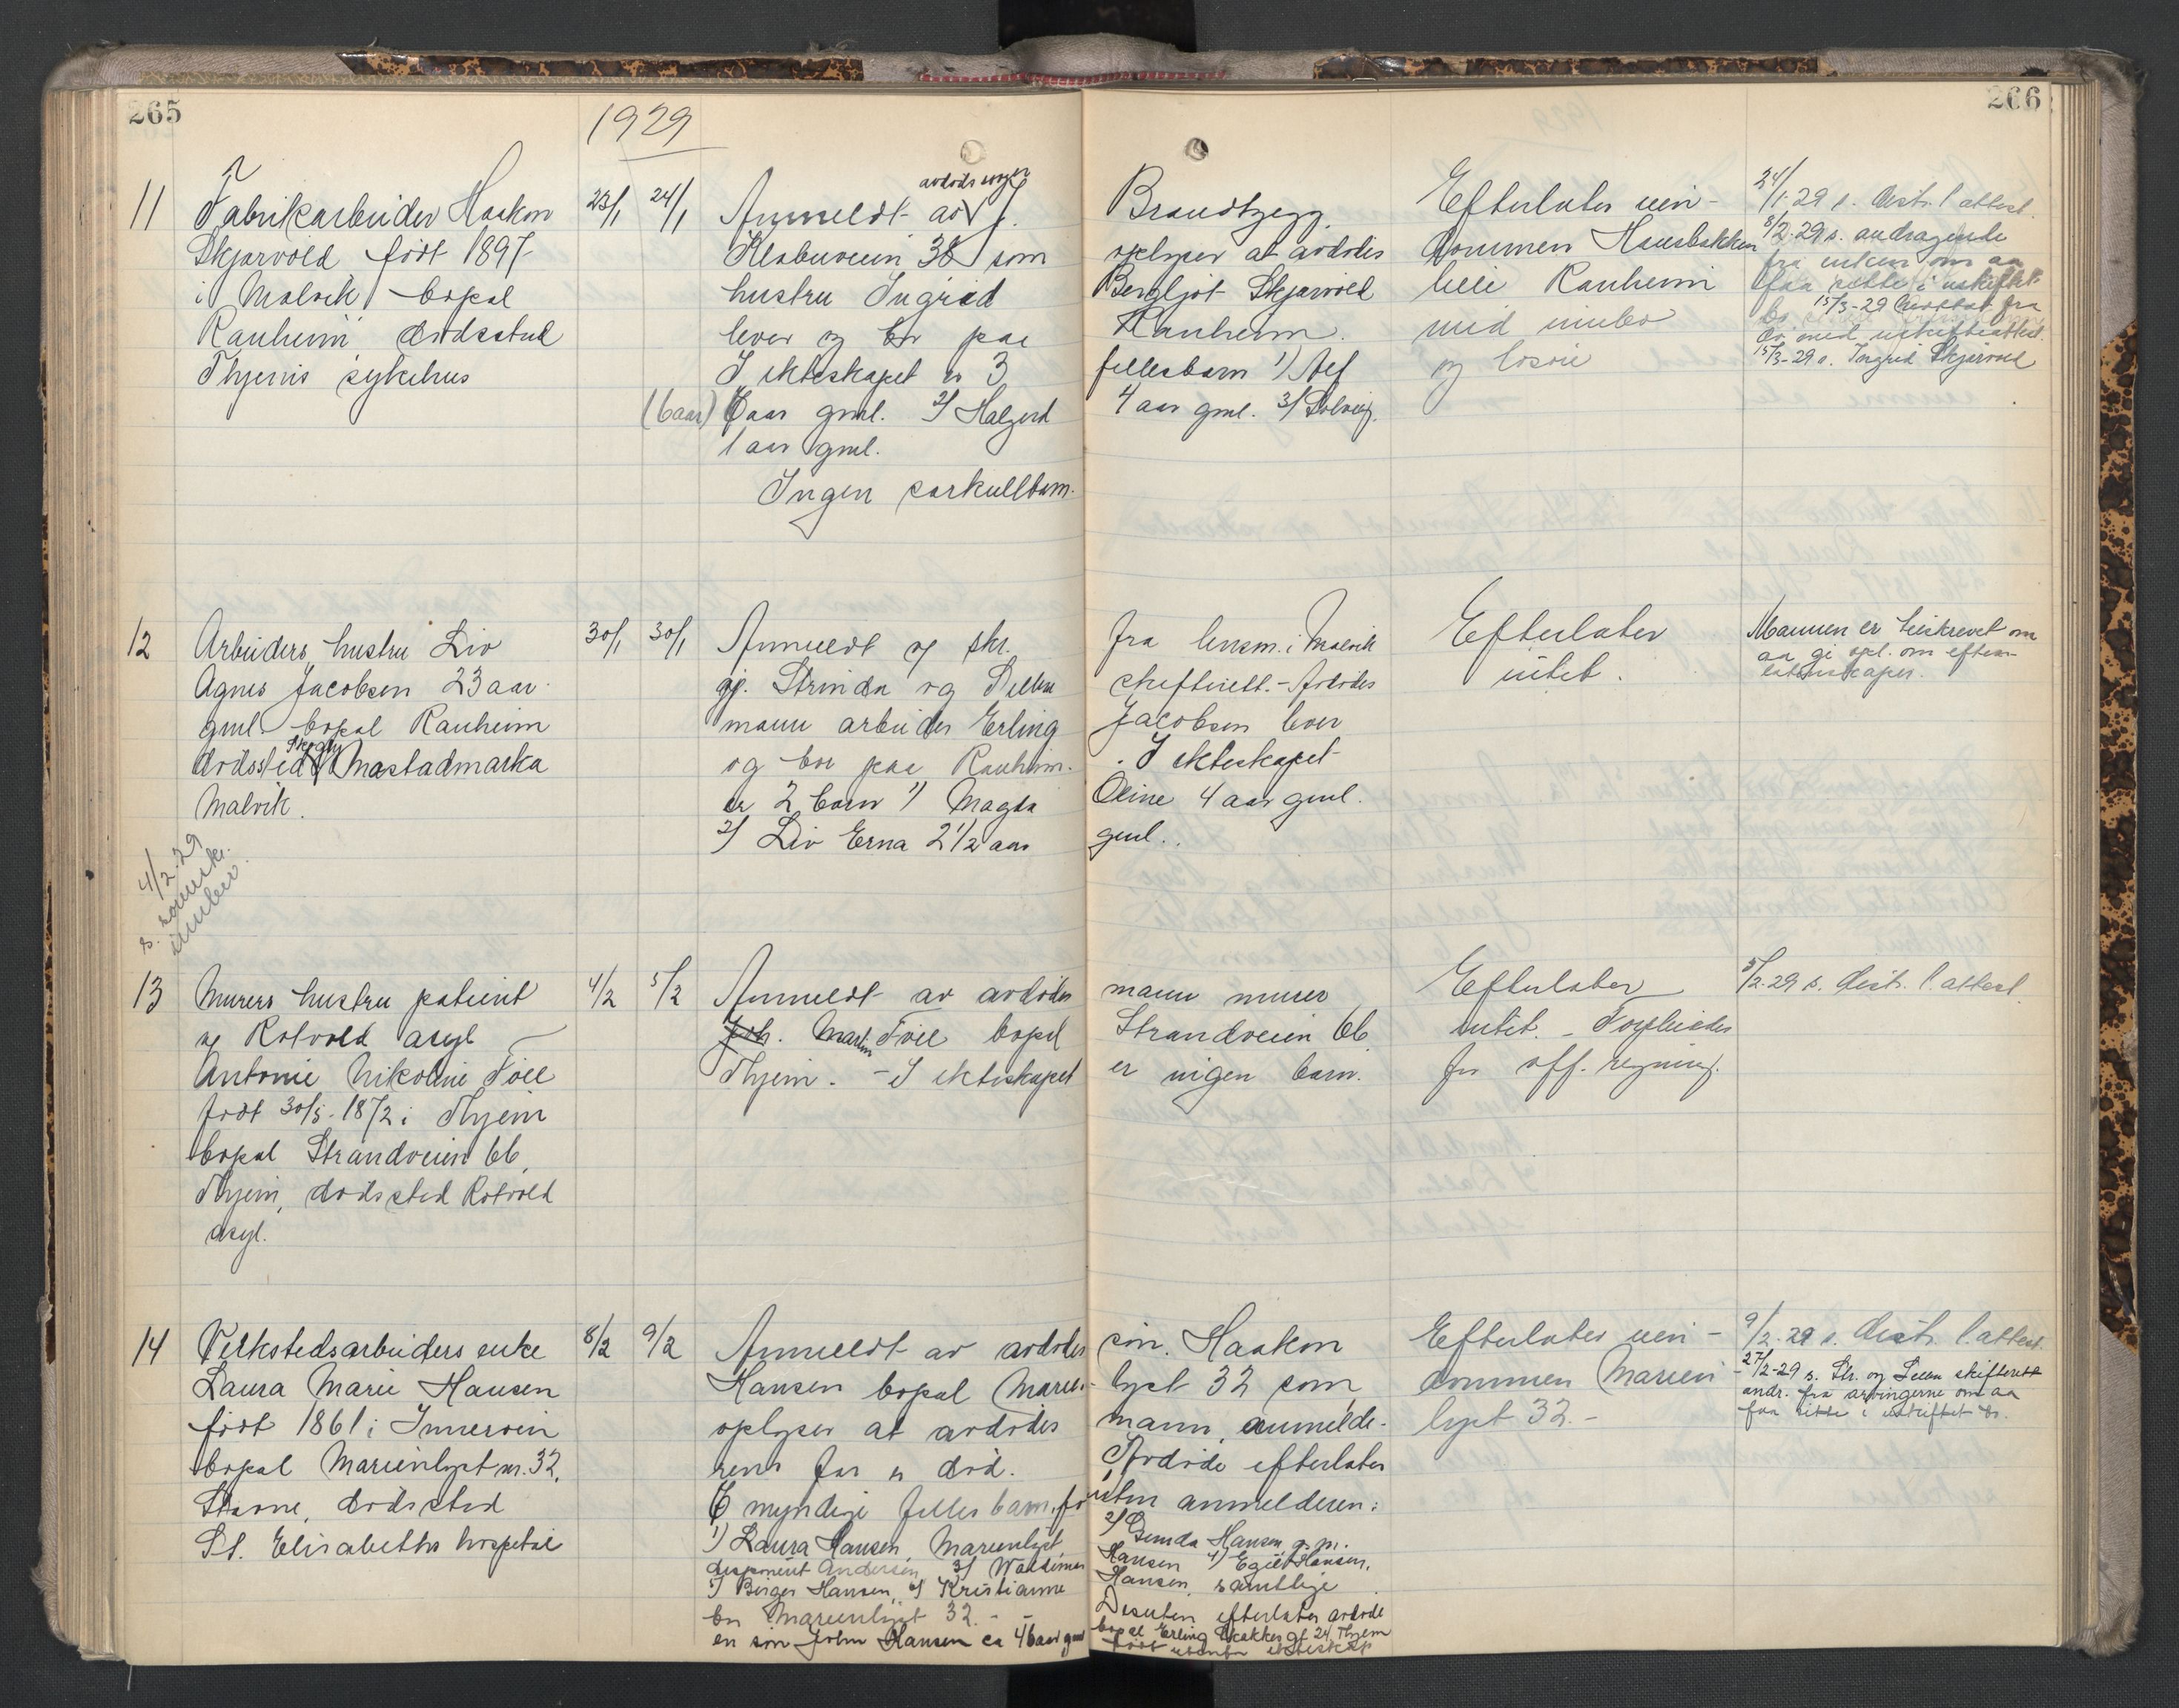 265
1929
266
11
Fabrikarbeider Haakon
Skjærvold, født 1897
i Malvik, bopæl
Ranheim dødssted
Thjems sykehus
23/1 24/1
avdødes svoger
Anmeldt av J.
Klæbuveien 38 som
hustru Ingrid
lever og bor paa
I ekteskapet er 3
(6 aar) 6 aar gml. 2) Halgerd
1 aar gml.
Ingen særkullbarn.
Brandtzegg
oplyser at avdødes
Bergljot Skjærvold
Ranheim.
fellesbarn 1) Alf
4 aar gml. 3) Solveig.
Efterlater eien-
dommen Hansbakken
Ranheim
med innbo
og løsøre
24/1-29 s. distr. l. attest.
8/2-29 s. andragende
fra enken om aa
faa sitte i uskiftet
bo 15/3-29
15/3-29 s. Ingrid Skjærvold
12
Arbeiders hustru Liv
Agnes Jacobsen 23 aar
gml. bopæl Ranheim
dødssted Mostadmarka
Malvik.
30/1 30/1
Anmeldt og skr.
gj. Strinda og Selbu
mann arbeider Erling
og bor paa Ranheim.
er 2 barn 1) Magda
2) Liv Erna 2 1/2 aar
fra lensm. i Malvik
skifterett. - Avdødes
Jacobsen lever
. I ekteskapet
Oline 4 aar gml.
gml.
Efterlater
intet.
Mannen er tilskrevet om
aa gi opl. om efter-
latenskaper.
4/2-29
13
Murers hustru patient
ved Rotvold asyl
Antonie Nikoline Foll
født 30/5-1872 i Thjem
bopæl Strandveien 66,
Thjem, dødssted Rotvold
asyl.
4/2 5/2
Anmeldt av avdødes
Joh. Martin Foll bopæl
Thjem. - I ekteskapet
mann murer
Strandveien 66
er ingen barn.
Efterlater
intet. - Forpleiedes
for off. regning.
5/2-29 s. distr. l. attest.
14
Verkstedsarbeiders enke
Laura Marie Hansen
født 1861 i Inderøen
bopæl Marienlyst nr. 32,
Stavne, dødssted
St. Elisabeths hospital
8/2 9/2
Anmeldt av avdødes
Hansen bopæl Marien-
oplyser at avdødes
rens far er død.
6 myndige felles barn, for
1) Laura Hansen, Marienlyst
disponent Andersen, 3) Waldemar
5) Birger Hansen, 6) Kristianne
bor Marienlyst 32. -
en søn John Hansen ca 46 aar gml
søn Haakon
lyst 32 som
mann, anmelde-
Avdøde efterlater
uten anmelderen:
2) Gunda Hansen g. m.
Hansen 4) Egil Hansen,
Hansen, samtlige
Desuten efterlater avdøde
bopæl Erling Skakkes gt 24, Thjem
født utenfor ekteskap
Efterlater eien-
dommen Marien-
lyst 32. -
9/2-29 s. distr. l. attest.
27/2-29 s. Str. og Selbu skifterett
andr. fra arvingerne om aa
faa sitte i uskiftet bo.